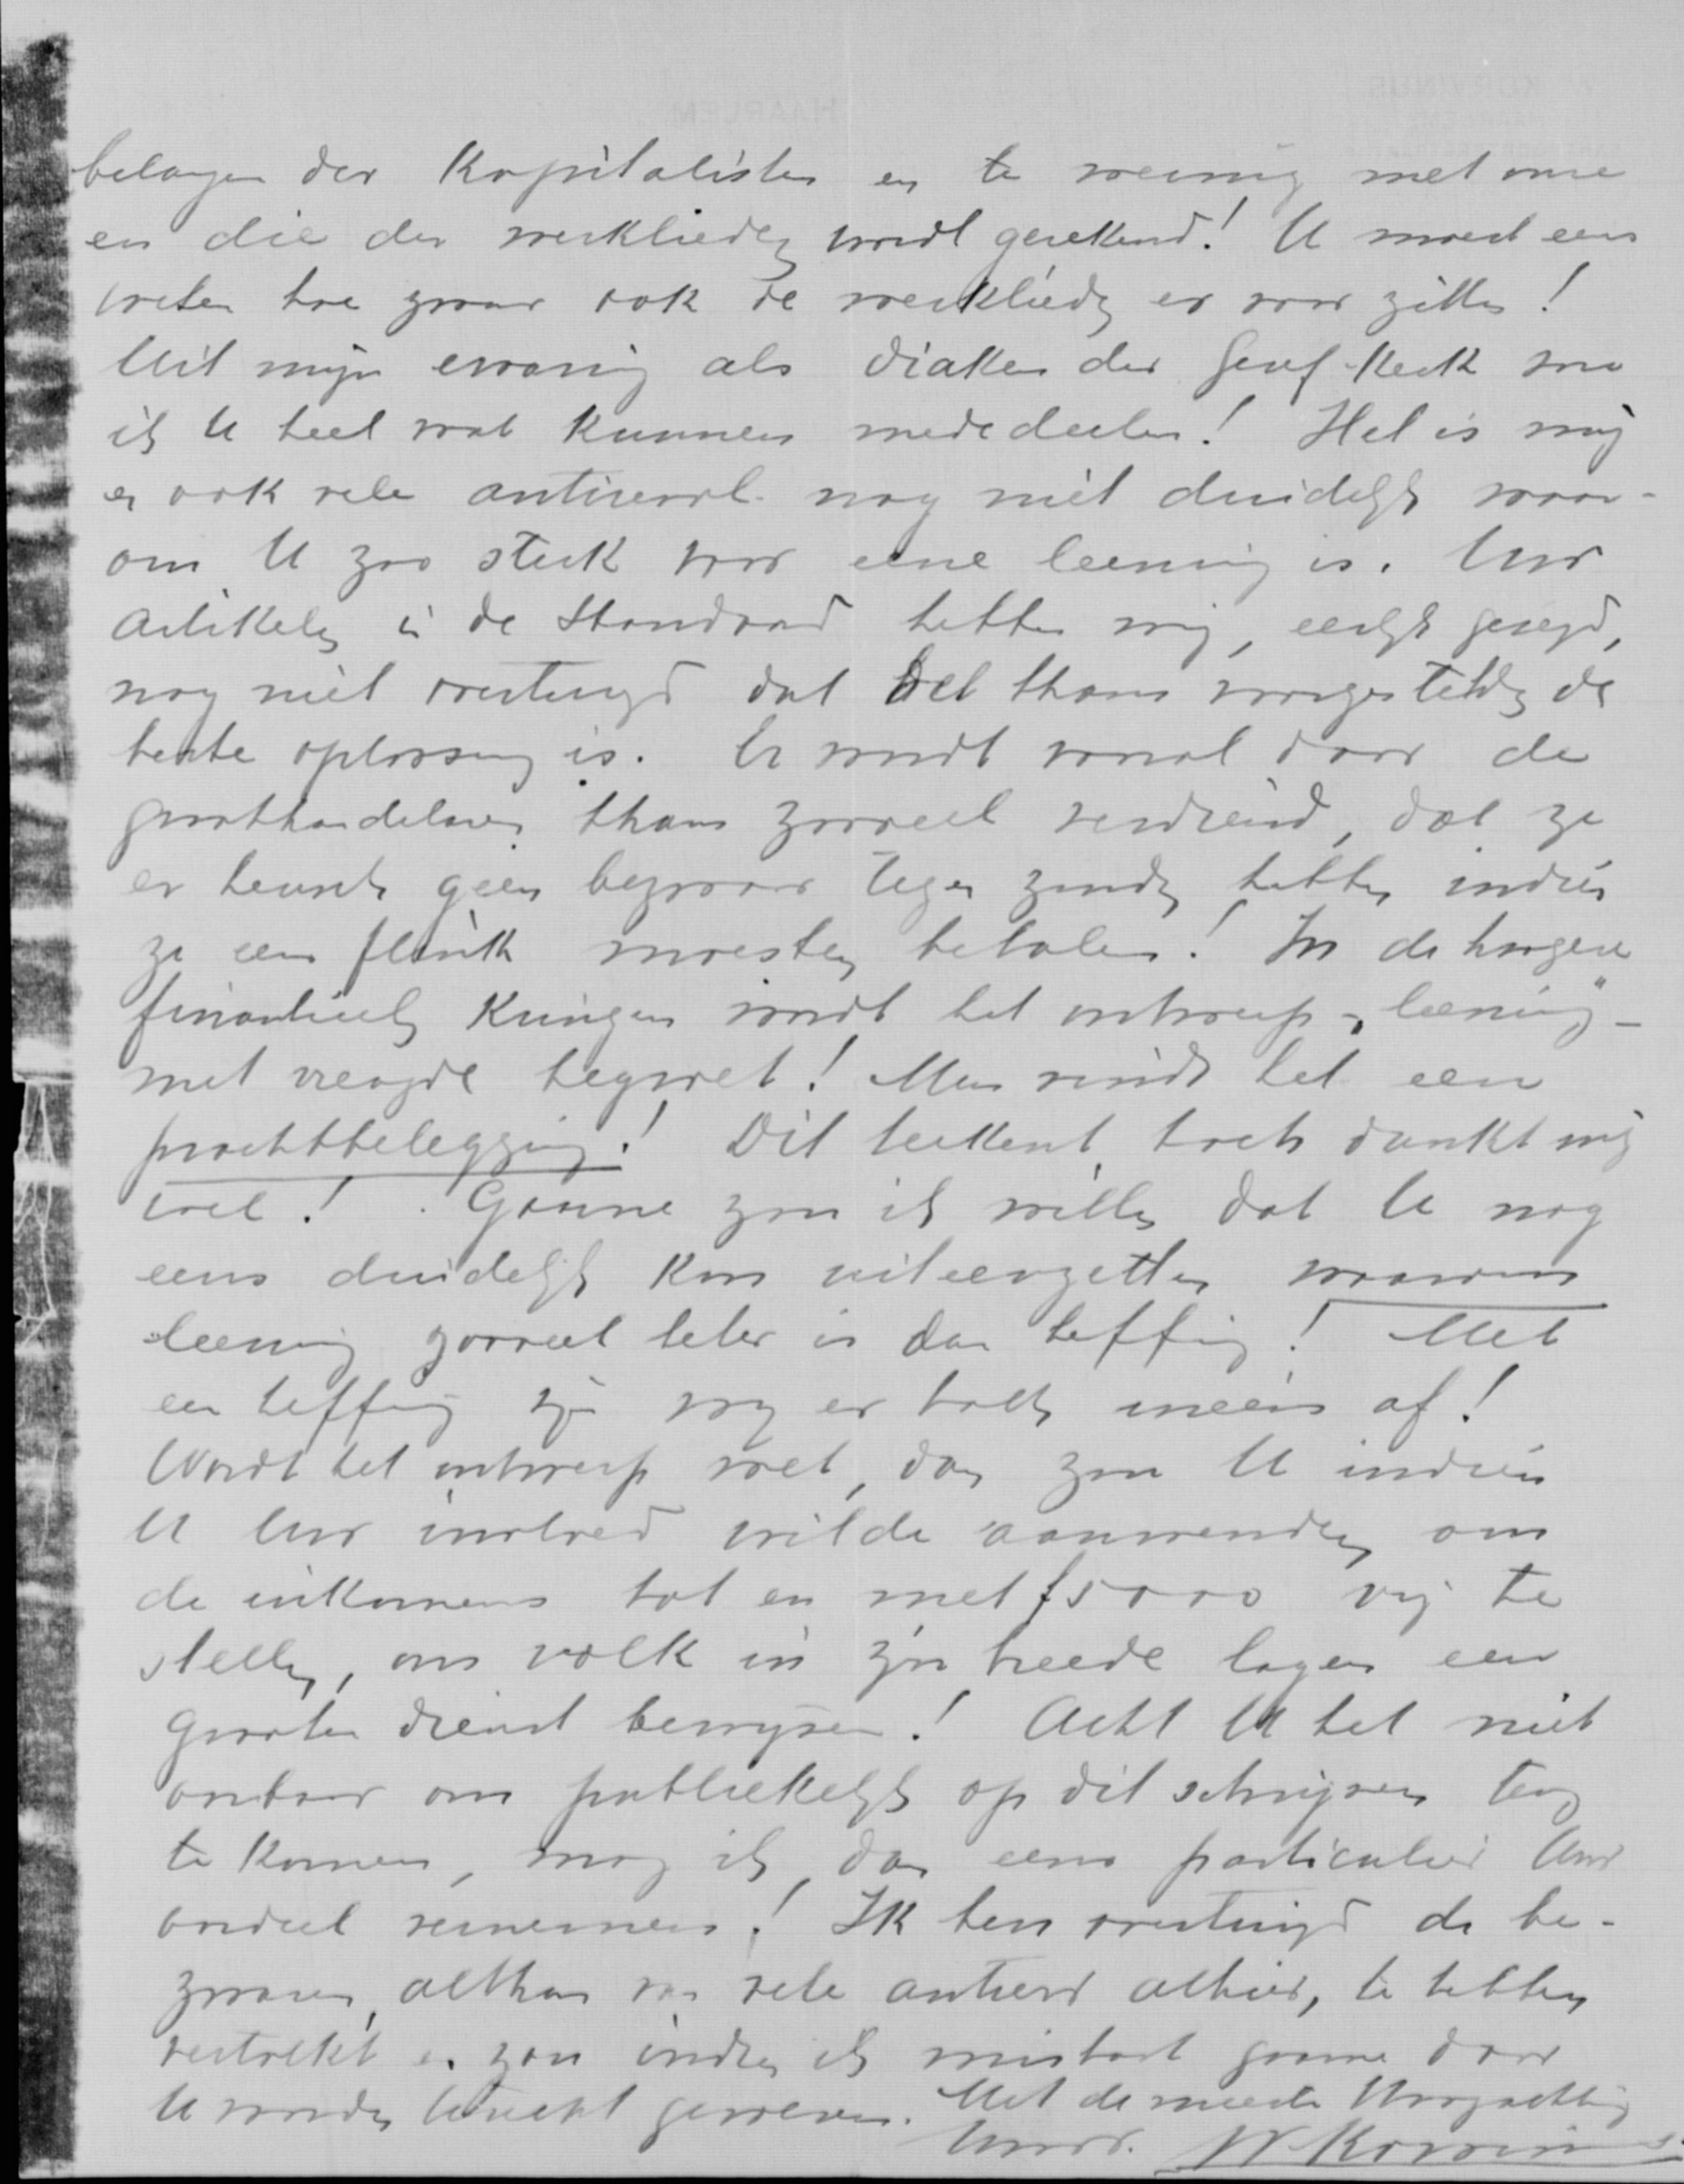 belangen der Kapitalisten en te weinig met onze
en die der werklieden wordt gerekend! U moest eens
weten hoe zwaar ook de werklieden er voor zitten!
Uit mijn ervaring als diaken der Geref. Kerk zou
ik U heel wat kunnen mededeelen! Het is mij
en ook vele antirevol. nog niet duidelijk waar-
om U zoo sterk voor eene leening is. Uw
artikelen in de Standaard hebben mij, eerlijk gezegd,
nog niet overtuigd dat het thans voorgestelde de
beste oplossing is. Er wordt vooral door de
groothandelaren thans zooveel verdiend, dat ze
er heusch geen bezwaar tegen zouden hebben indien
ze eens flink moesten betalen! In de hoogere
financieele Kringen wordt het ontwerp „leening"-
met vreugde begroet! Men vindt het een
prachtbelegging! Dit teekent toch dunkt mij
wel! Gaarne zou ik willen dat U nog
eens duidelijk kon uiteenzetten waarom
leening zooveel beter is dan heffing! Met
een heffing zijn wij er toch ineens af!
Wordt het ontwerp wet, dan zou U indien
U Uw invloed wilde aanwenden om
de inkomens tot en met f 5000 vrij te
stellen, ons volk in z'n breede lagen een
grooten dienst bewijzen! Acht U het niet
oorbaar om publiekelijk op dit schrijven terug
te komen, mag ik dan eens particulier Uw
oordeel vernemen! Ik ben overtuigd de be-
zwaren, althans van vele antirev. alhier, te hebben
vertolkt en zou indien ik mistast gaarne door
U worden terecht gewezen. Met de meeste Hoogachting
Uwdr. W Korvinus